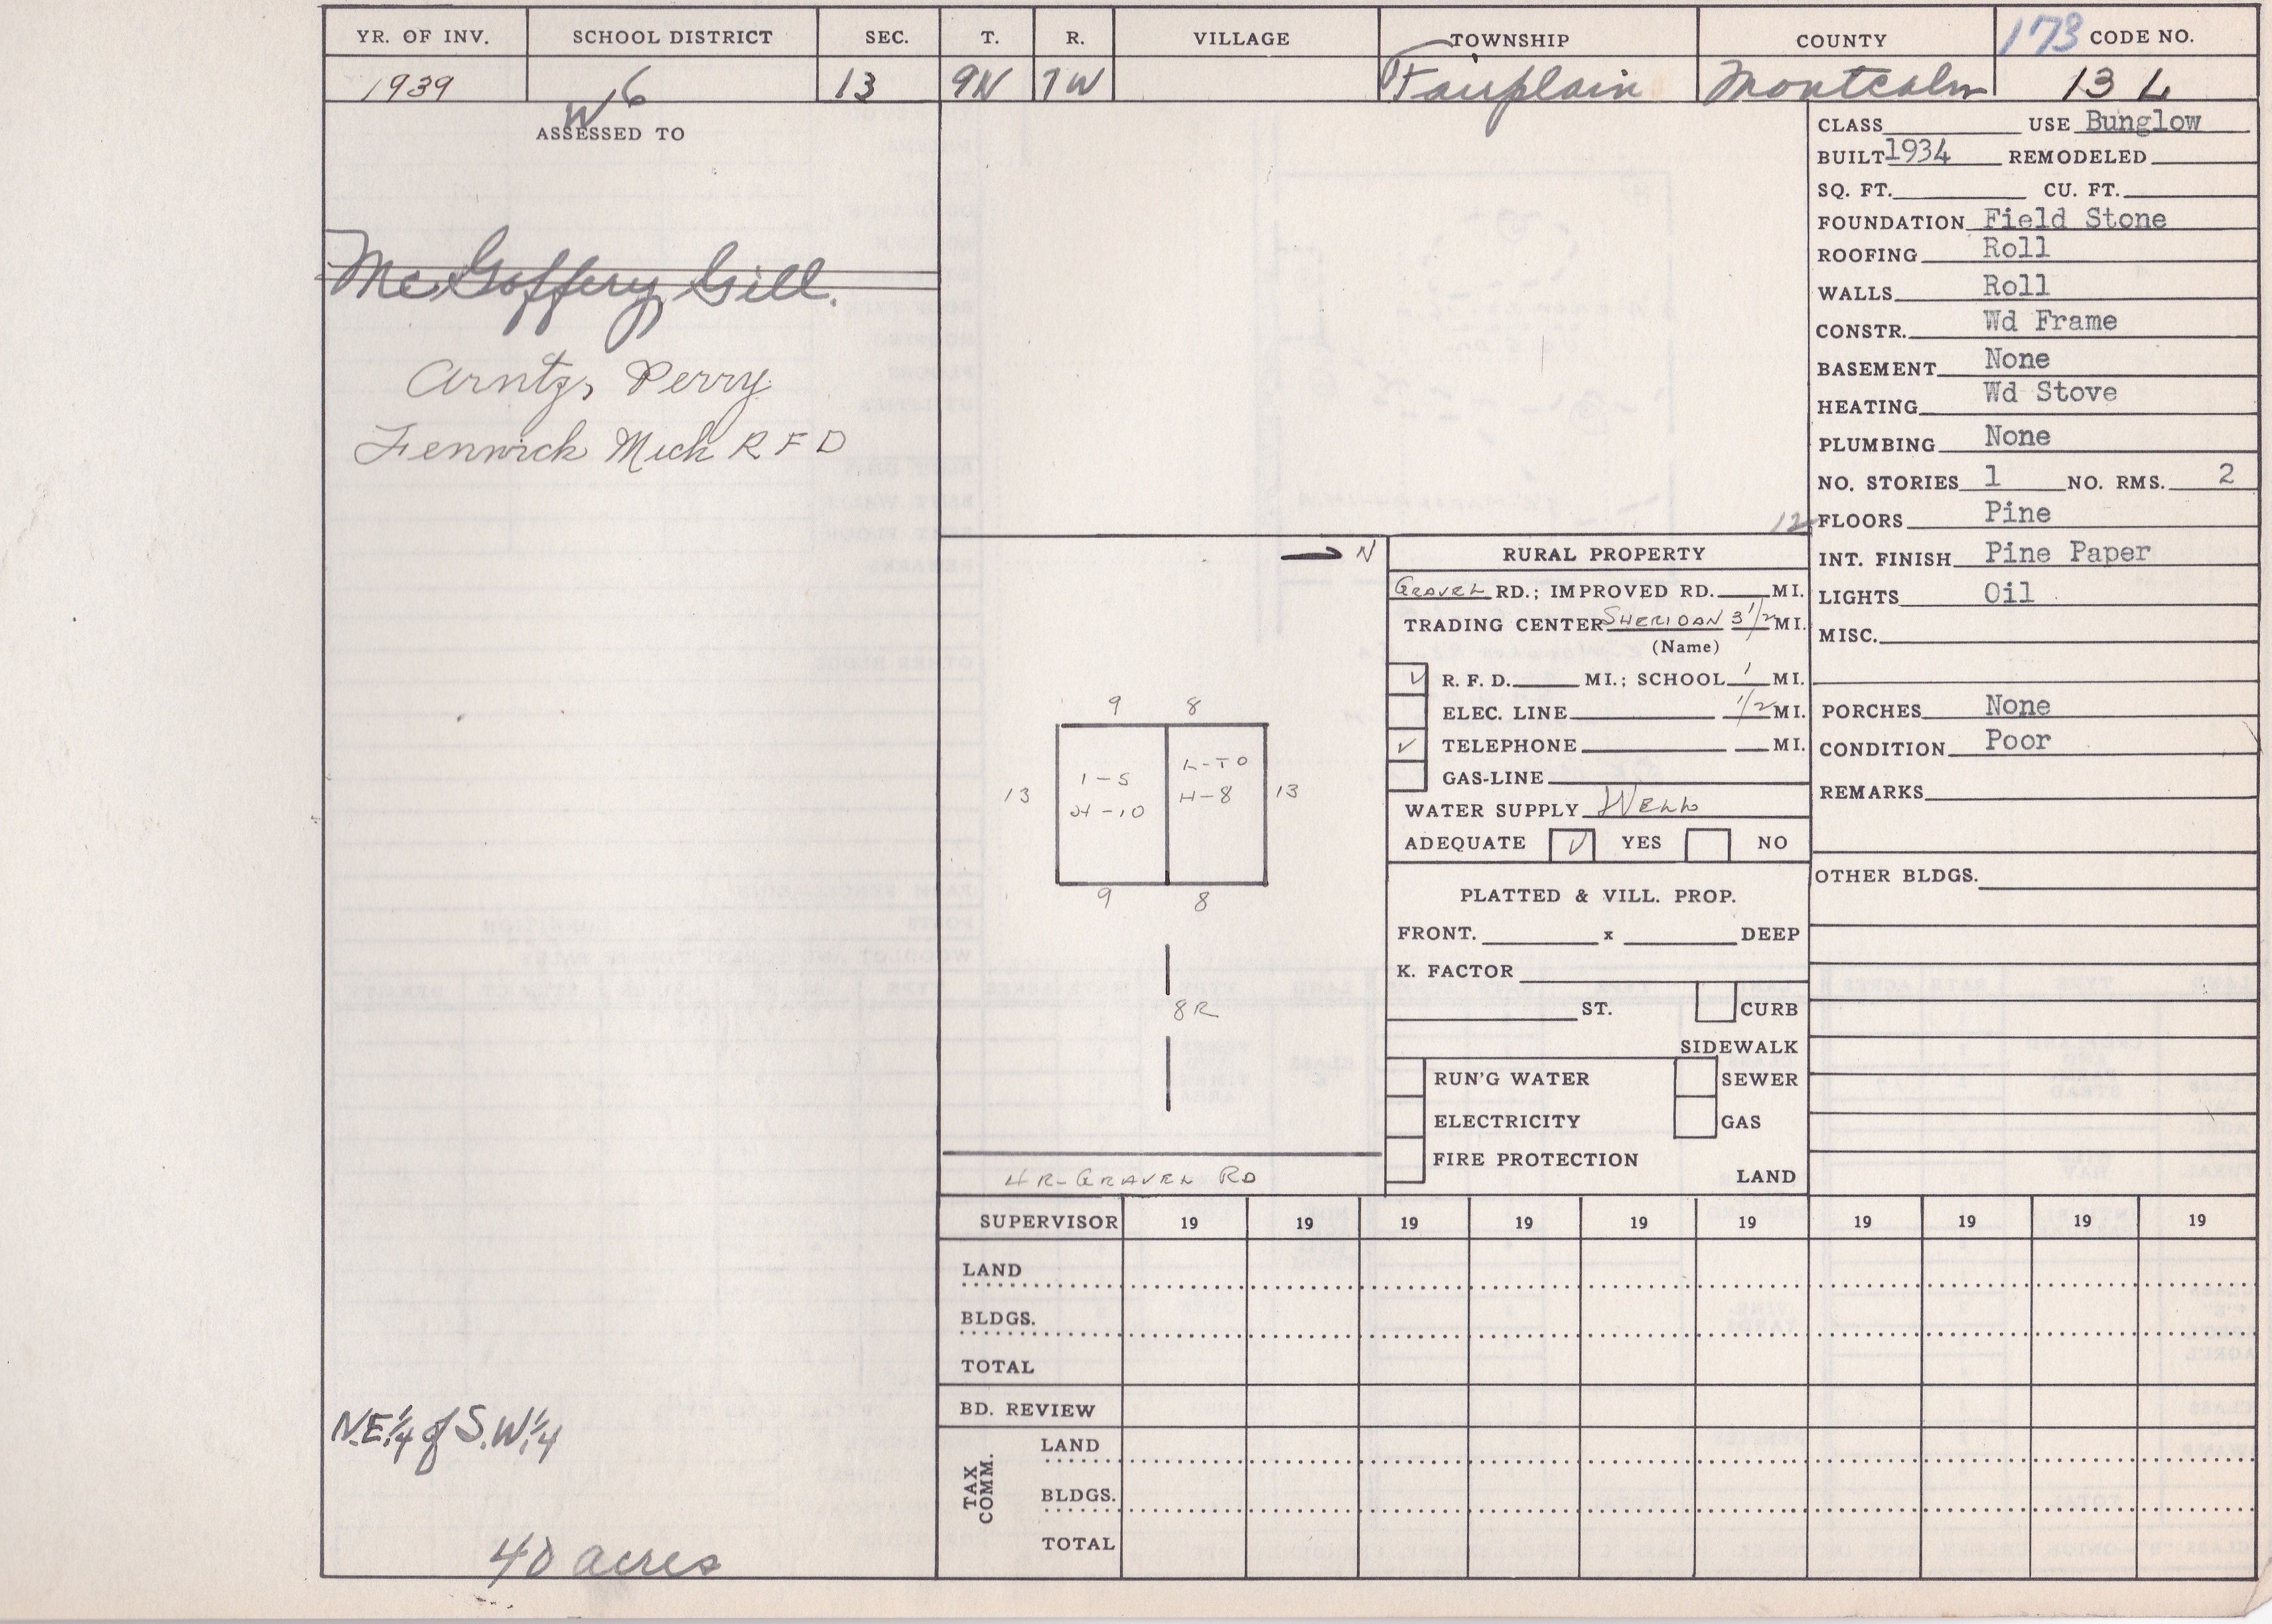 YR. OF INV. SCHOOL DISTRICT SEC. T. R. VILLAGE TOWNSHIP COUNTY 173 CODE NO.
1939 W6 13 9N 7W Fairplain Montcalm 13 L
ASSESSED TO
Mc Goffery Gill.
Arntz, Perry
Fenwick Mich R F D
N.E.1/4 of S.W.1/4
40 acres
N
9 8
13 1-S L-TO 13
H-10 H-8
9 8
8R
4R-GRAVEL RD
12
RURAL PROPERTY
GRAVEL RD.; IMPROVED RD. MI.
TRADING CENTER SHERIDAN 3 1/2 MI.
(Name)
✓ R. F. D. MI.; SCHOOL 1 MI.
ELEC. LINE 1/2 MI.
✓ TELEPHONE MI.
GAS-LINE
WATER SUPPLY WELL
ADEQUATE ✓ YES NO
PLATTED & VILL. PROP.
FRONT. x DEEP
K. FACTOR
ST. CURB
SIDEWALK
RUN'G WATER SEWER
ELECTRICITY GAS
FIRE PROTECTION
LAND
CLASS USE Bunglow
BUILT 1934 REMODELED
SQ. FT. CU. FT.
FOUNDATION Field Stone
ROOFING Roll
WALLS Roll
CONSTR. Wd Frame
BASEMENT None
HEATING Wd Stove
PLUMBING None
NO. STORIES 1 NO. RMS. 2
FLOORS Pine
INT. FINISH Pine Paper
LIGHTS Oil
MISC.
PORCHES None
CONDITION Poor
REMARKS
OTHER BLDGS.
SUPERVISOR 19 19 19 19 19 19 19 19 19 19
LAND
BLDGS.
TOTAL
BD. REVIEW
TAX COMM.
LAND
BLDGS.
TOTAL